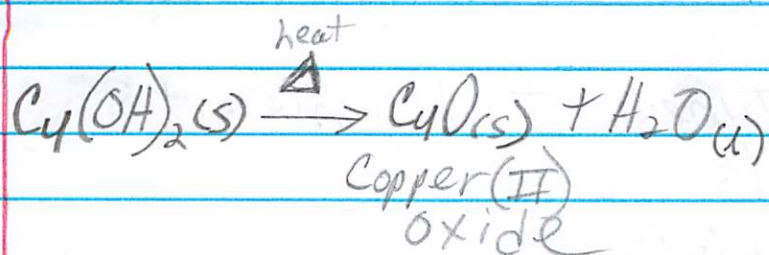 heat
Δ
Cu(OH)₂(s) → CuO(s) + H₂O(l)
Copper(II)
oxide